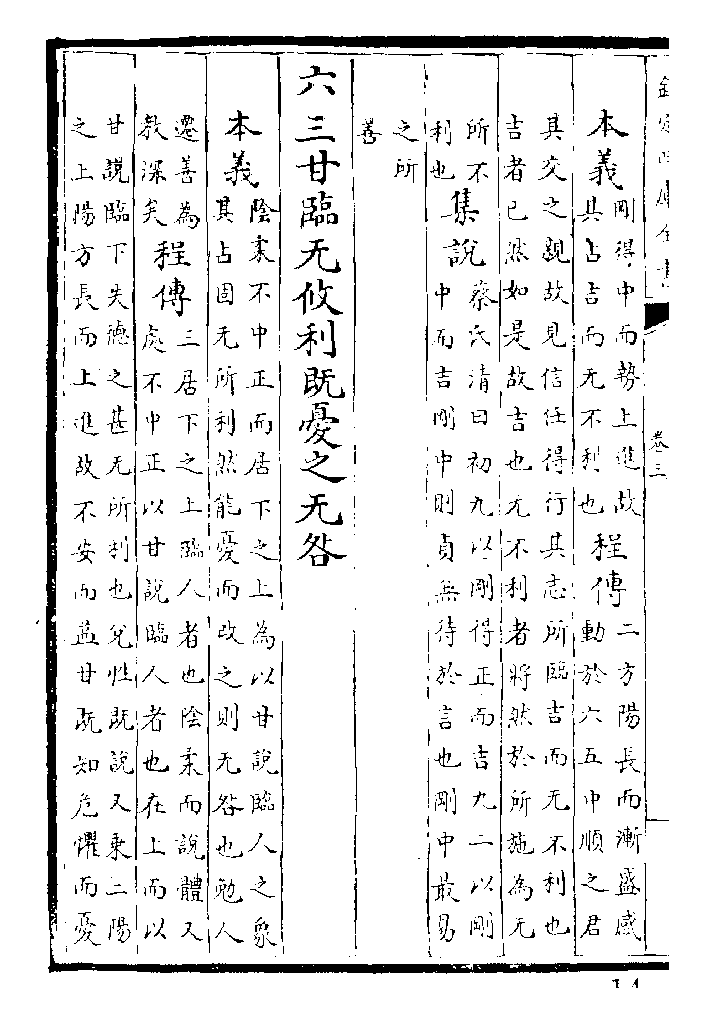 欽定四庫全書 卷三
本義剛得中而勢上進故
其占吉而无不利也
程傳二方陽長而漸盛感
動於六五中順之君
其交之親故見信任得行其志所臨吉而无不利也
吉者已然如是故吉也无不利者將然於所施為无
所不
利也
集說蔡氏清曰初九以剛得正而吉九二以剛
中而吉剛中則貞無待於言也剛中最易
之所
善
六三甘臨无攸利既憂之无咎
本義陰柔不中正而居下之上為以甘說臨人之象
其占固无所利然能憂而改之則无咎也勉人
遷善為
教深矣
程傳三居下之上臨人者也陰柔而說體又
處不中正以甘說臨人者也在上而以
甘說臨下失德之甚无所利也兌性既說又乘二陽
之上陽方長而上進故不安而益甘既知危懼而憂